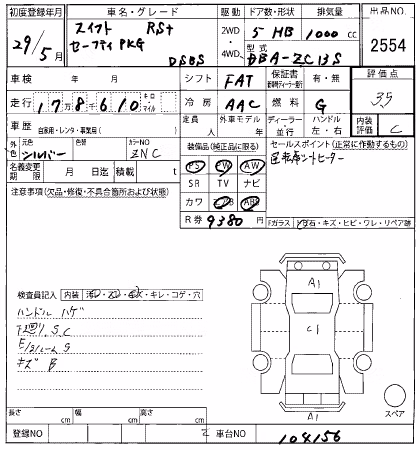 初度登録年月 車名・グレード 駆動 ドア数・形状 排気量 出品NO
29年 5月 スイフト RSt 2WD 4WD 5 HB 1000 cc 2554
セーフティ PKG DSBS 型式 DBA-ZC13S
車検 年 月 シフト FAT 保証書 有・無 評価点
走行 17万8千610 キロ・マイル 冷房 AAC 燃料 G 3.5
車歴 自家用・レンタ・事業用( ) 定員 人 外車モデル 年 ディーラー 並行 ハンドル 左・右 内装評価 C
外色 元色 シルバー 色替 カラーNO ZNC 装備品(純正品に限る) セールスポイント(正常に作動するもの)
名義変更期限 月 日迄 積載 t PS PW AW 運転席シートヒーター
注意事項(欠品・修復・不具合箇所および状態) SR TV ナビ
カワ ABS
R券 9380円 Fガラス 石・キズ・ヒビ・ワレ・リペア跡
A1
検査員記入 内装 ・キレ・コゲ・穴
ハンドル ハゲ C1
下廻り.S C
E/gルーム S
キズ B
スペア
長さ cm 幅 cm 高さ cm A1
登録NO 車台NO 104156